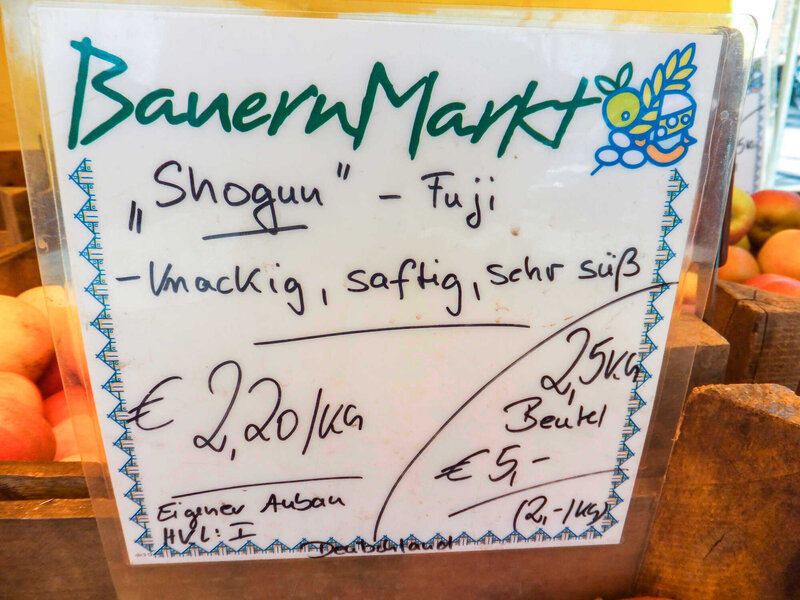 BauernMarkt
„Shogun" - Fuji
- knackig, saftig, sehr süß
€ 2,20/kg
2,5kg
Beutel
€ 5,-
(2,-/kg)
Eigener Anbau
HKL: I
Deutschland